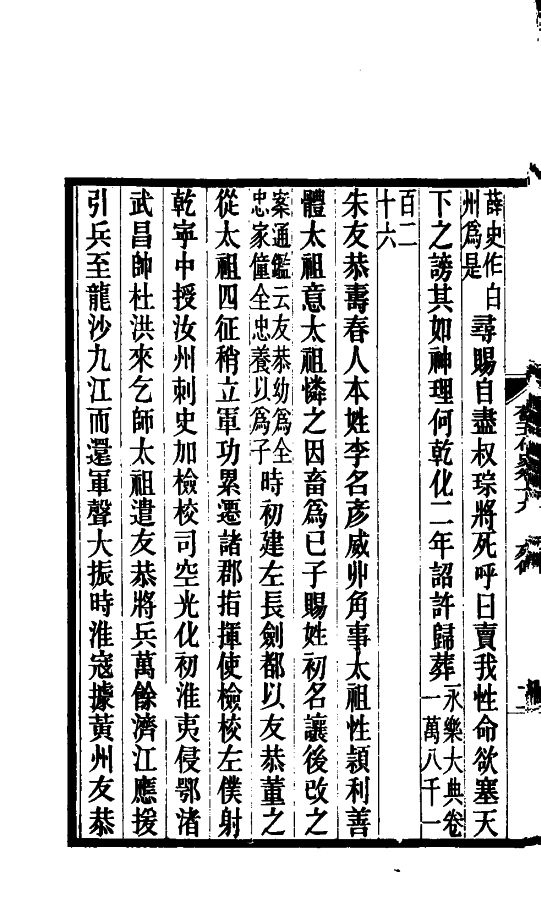 薛史作白
州爲是
尋賜自盡叔琮將死呼曰賣我性命欲塞天
下之謗其如神理何乾化二年詔許歸葬
永樂大典卷
一萬八千一
百二
十六
朱友恭壽春人本姓李名彥威丱角事太祖性頴利善
體太祖意太祖憐之因畜爲已子賜姓初名讓後改之
案通鑑云友恭幼爲全
忠家僮全忠養以爲子
時初建左長劍都以友恭董之
從太祖四征稍立軍功累遷諸郡指揮使檢校左僕射
乾寧中授汝州刺史加檢校司空光化初淮夷侵鄂渚
武昌帥杜洪來乞師太祖遣友恭將兵萬餘濟江應援
引兵至龍沙九江而還軍聲大振時淮寇據黃州友恭